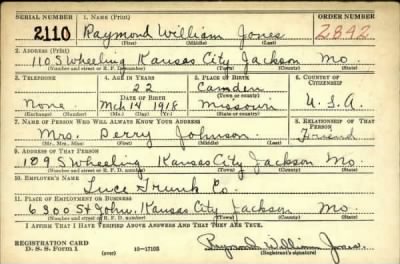 SERIAL NUMBER 1. NAME (Print) ORDER NUMBER
2110 Raymond William Jones 2842
(First) (Middle) (Last)
2. ADDRESS (Print)
110 S Wheeling Kansas City Jackson Mo.
(Number and street or R. F. D. number) (Town) (County) (State)
3. TELEPHONE 4. AGE IN YEARS 5. PLACE OF BIRTH 6. COUNTRY OF CITIZENSHIP
22 Camden
DATE OF BIRTH (Town or county)
None Mch 14 1918 Missouri U.S.A.
(Exchange) (Number) (Mo.) (Day) (Yr.) (State or country)
7. NAME OF PERSON WHO WILL ALWAYS KNOW YOUR ADDRESS 8. RELATIONSHIP OF THAT PERSON
Mrs. Perry Johnson Friend
(Mr., Mrs., Miss) (First) (Middle) (Last)
9. ADDRESS OF THAT PERSON
109 S Wheeling Kansas City Jackson Mo.
(Number and street or R. F. D. number) (Town) (County) (State)
10. EMPLOYER'S NAME
Luce Trunk Co.
11. PLACE OF EMPLOYMENT OR BUSINESS
6300 St John. Kansas City Jackson Mo.
(Number and street or R. F. D. number) (Town) (County) (State)
I AFFIRM THAT I HAVE VERIFIED ABOVE ANSWERS AND THAT THEY ARE TRUE.
REGISTRATION CARD
D. S. S. Form 1 (over) 16—17105 Raymond William Jones.
(Registrant's signature)